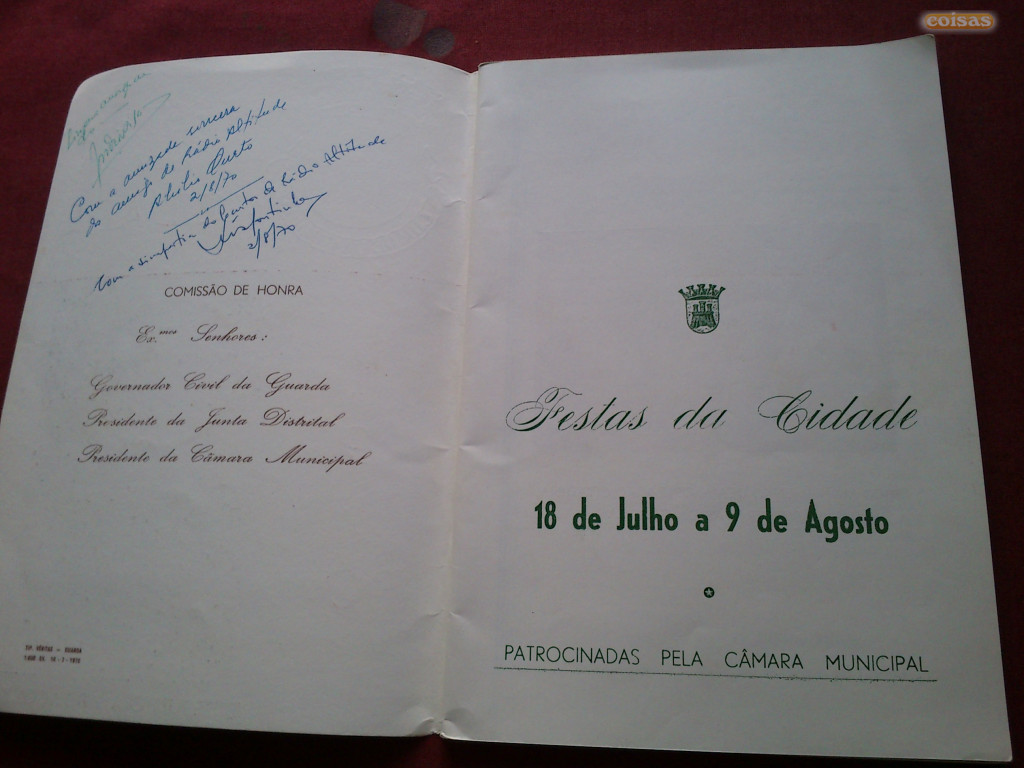 Com a amizade sincera
do amigo do Rádio Altitude
2/8/70
Com a simpatia do Rádio Altitude
2/8/70
COMISSÃO DE HONRA
Ex.mos Senhores:
Governador Civil da Guarda
Presidente da Junta Distrital
Presidente da Câmara Municipal
coisas
Festas da Cidade
18 de Julho a 9 de Agosto
PATROCINADAS PELA CÂMARA MUNICIPAL